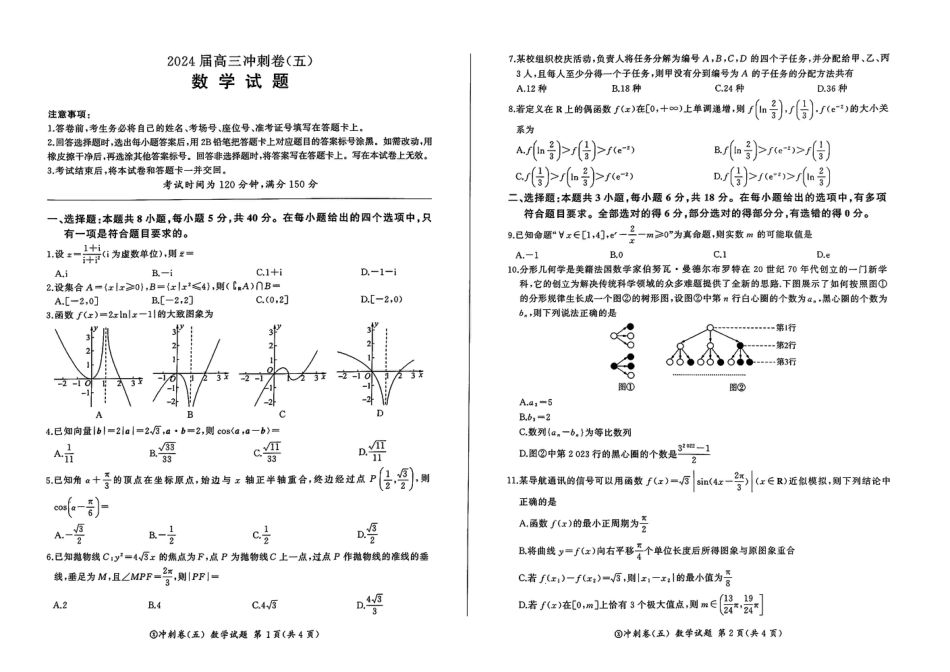 2024 届高三冲刺卷(五)
数 学 试 题
注意事项:
1.答卷前,考生务必将自己的姓名、考场号、座位号、准考证号填写在答题卡上。
2.回答选择题时,选出每小题答案后,用 2B 铅笔把答题卡上对应题目的答案标号涂黑。如需改动,用
橡皮擦干净后,再选涂其他答案标号。回答非选择题时,将答案写在答题卡上。写在本试卷上无效。
3.考试结束后,将本试卷和答题卡一并交回。
考试时间为 120 分钟,满分 150 分
一、选择题:本题共 8 小题,每小题 5 分,共 40 分。在每小题给出的四个选项中,只
有一项是符合题目要求的。
1.设 z=(1+i)/(i+i²)(i 为虚数单位),则 z=
A.i B.-i C.1+i D.-1-i
2.设集合 A={x|x≥0},B={x|x²≤4},则(∁RA)∩B=
A.[-2,0] B.[-2,2] C.(0,2] D.[-2,0)
3.函数 f(x)=2xln|x-1|的大致图象为
A B C D
4.已知向量|b|=2|a|=2√3,a·b=2,则 cos⟨a,a-b⟩=
A.1/11 B.√33/33 C.√11/33 D.√11/11
5.已知角 α+π/3 的顶点在坐标原点,始边与 x 轴正半轴重合,终边经过点 P(1/2,√3/2),则
cos(α-π/6)=
A.-√3/2 B.-1/2 C.1/2 D.√3/2
6.已知抛物线 C:y²=4√3x 的焦点为 F,点 P 为抛物线 C 上一点,过点 P 作抛物线的准线的垂
线,垂足为 M,且∠MPF=2π/3,则|PF|=
A.2 B.4 C.4√3 D.4√3/3
③冲刺卷(五) 数学试题 第 1页(共 4 页)
7.某校组织校庆活动,负责人将任务分解为编号 A,B,C,D 的四个子任务,并分配给甲、乙、丙
3 人,且每人至少分得一个子任务,则甲没有分到编号为 A 的子任务的分配方法共有
A.12 种 B.18 种 C.24 种 D.36 种
8.若定义在 R 上的偶函数 f(x)在[0,+∞)上单调递增,则 f(ln 2/3),f(1/3),f(e⁻²)的大小关
系为
A.f(ln 2/3)>f(1/3)>f(e⁻²) B.f(ln 2/3)>f(e⁻²)>f(1/3)
C.f(1/3)>f(ln 2/3)>f(e⁻²) D.f(1/3)>f(e⁻²)>f(ln 2/3)
二、选择题:本题共 3 小题,每小题 6 分,共 18 分。在每小题给出的选项中,有多项
符合题目要求。全部选对的得 6 分,部分选对的得部分分,有选错的得 0 分。
9.已知命题“∀x∈[1,4],eˣ-2/x-m≥0”为真命题,则实数 m 的可能取值是
A.-1 B.0 C.1 D.e
10.分形几何学是美籍法国数学家伯努瓦·曼德尔布罗特在 20 世纪 70 年代创立的一门新学
科,它的创立为解决传统科学领域的众多难题提供了全新的思路.下图展示了如何按照图①
的分形规律生长成一个图②的树形图,设图②中第 n 行白心圈的个数为 aₙ,黑心圈的个数为
bₙ,则下列说法正确的是
第1行
第2行
第3行
图① 图②
A.a₃=5
B.b₃=2
C.数列{aₙ-bₙ}为等比数列
D.图②中第 2 023 行的黑心圈的个数是(3²⁰²²-1)/2
11.某导航通讯的信号可以用函数 f(x)=√3|sin(4x-2π/3)|(x∈R)近似模拟,则下列结论中
正确的是
A.函数 f(x)的最小正周期为π/2
B.将曲线 y=f(x)向右平移π/4个单位长度后所得图象与原图象重合
C.若 f(x₁)-f(x₂)=√3,则|x₁-x₂|的最小值为π/8
D.若 f(x)在[0,m]上恰有 3 个极大值点,则 m∈(13/24π,19/24π]
③冲刺卷(五) 数学试题 第 2页(共 4 页)